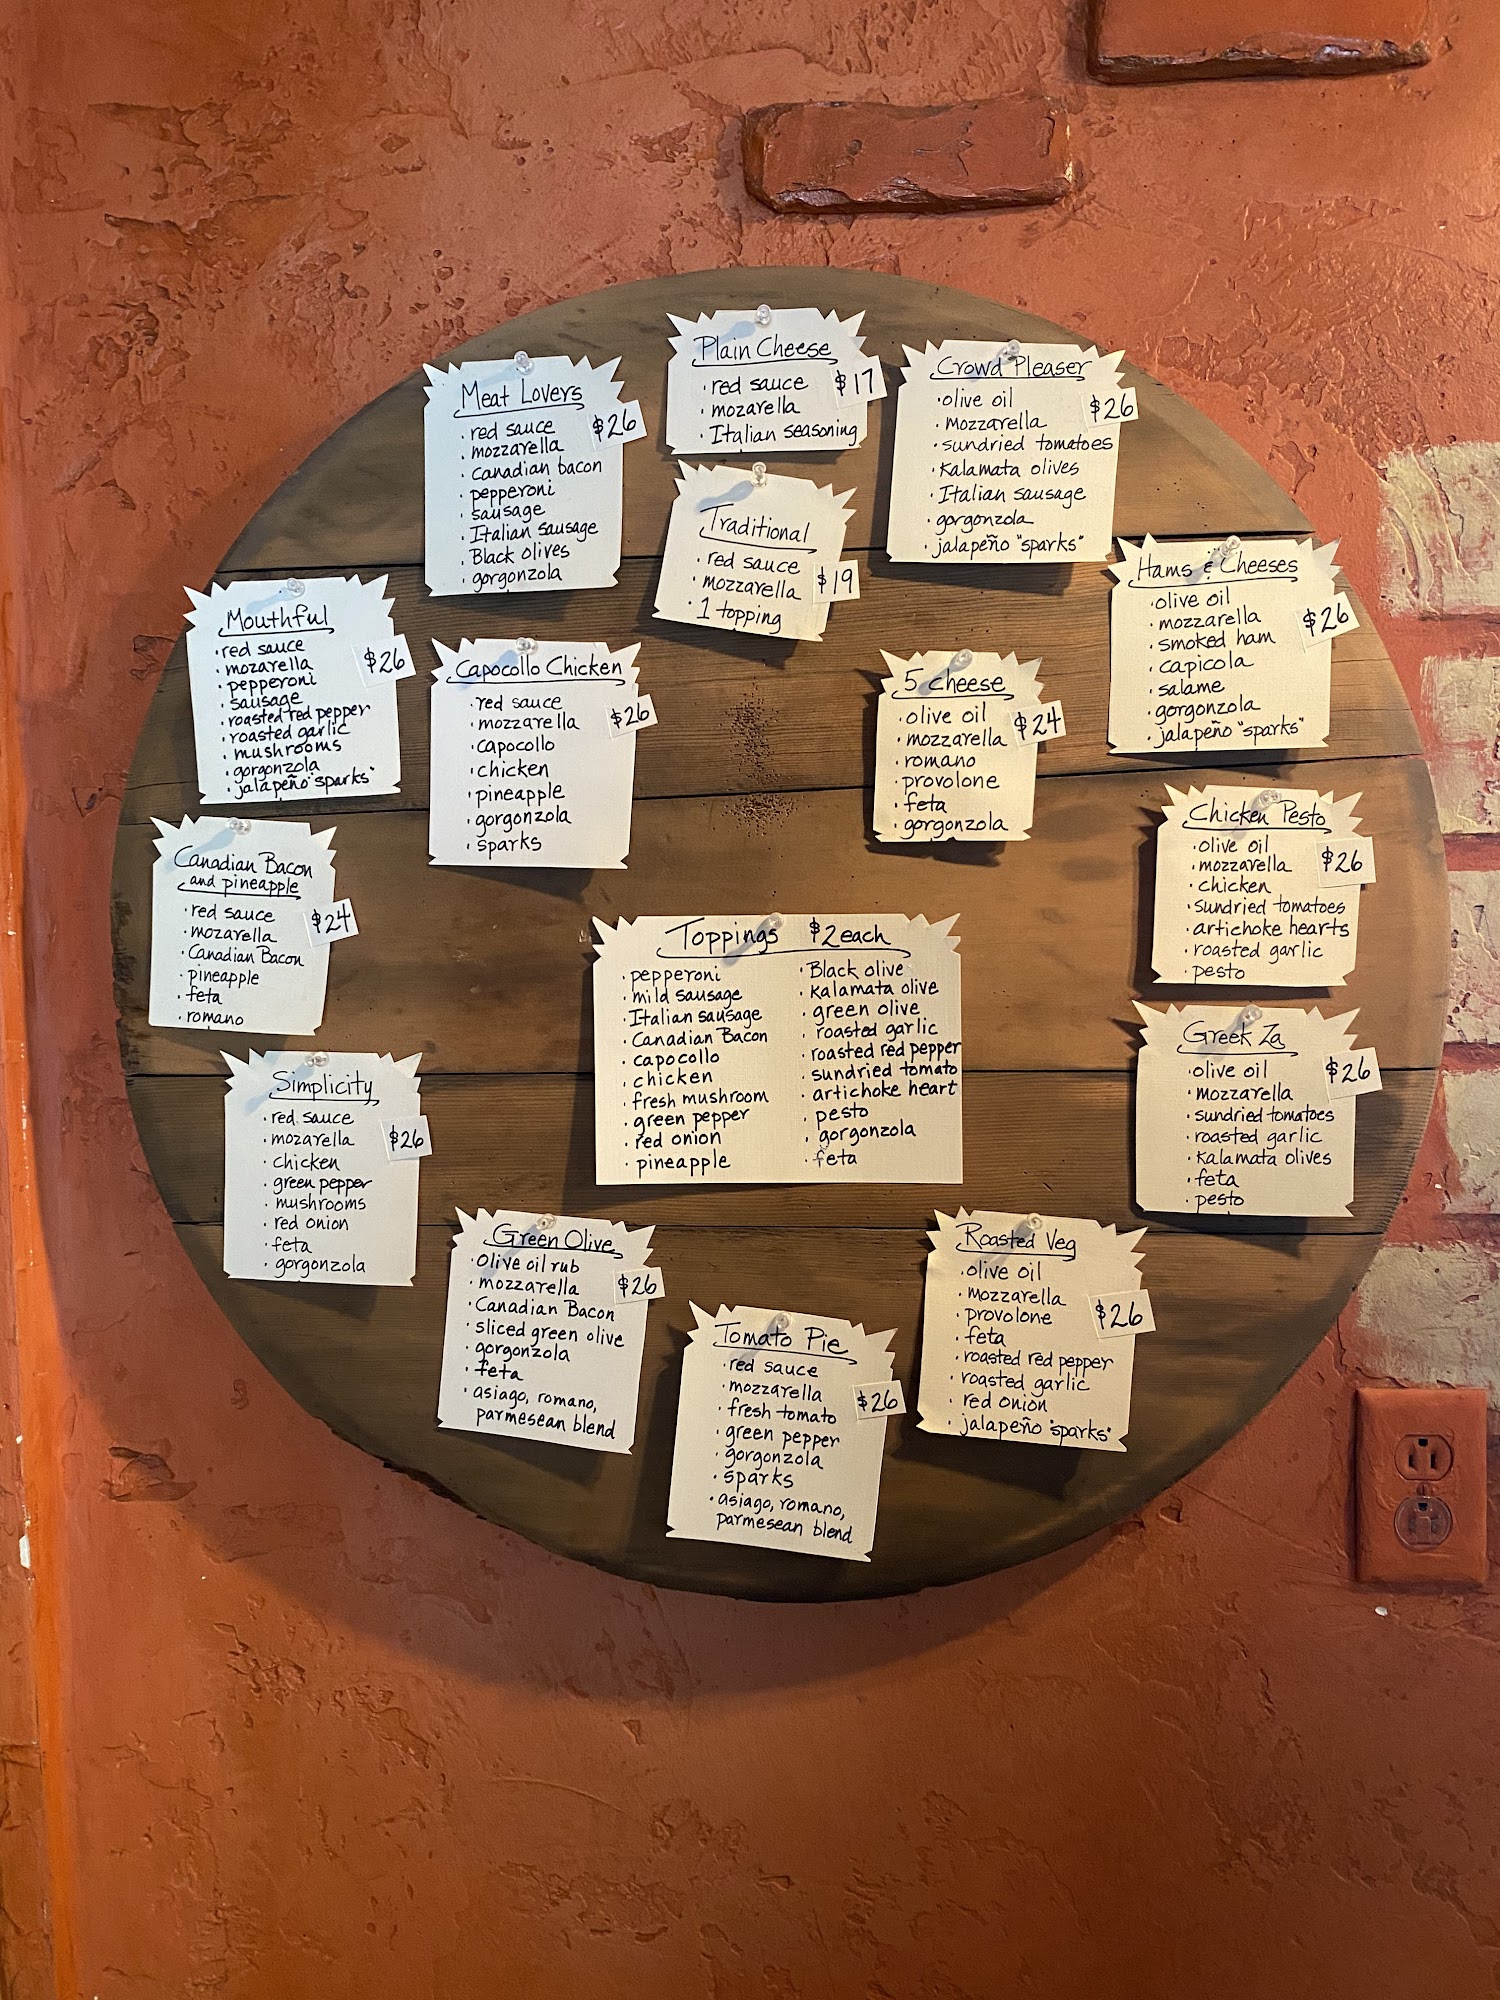 Plain Cheese
$17
• red sauce
• mozarella
• Italian seasoning
Meat Lovers
$26
• red sauce
• mozzarella
• canadian bacon
• pepperoni
• sausage
• Italian sausage
• Black olives
• gorgonzola
Crowd Pleaser
$26
• olive oil
• mozzarella
• sundried tomatoes
• Kalamata olives
• Italian sausage
• gorgonzola
• jalapeño "sparks"
Traditional
$19
• red sauce
• mozzarella
• 1 topping
Hams & Cheeses
$26
• olive oil
• mozzarella
• smoked ham
• capicola
• salame
• gorgonzola
• jalapeño "sparks"
Mouthful
$26
• red sauce
• mozarella
• pepperoni
• sausage
• roasted red pepper
• roasted garlic
• mushrooms
• gorgonzola
• jalapeño "sparks"
Capocollo Chicken
$26
• red sauce
• mozzarella
• capocollo
• chicken
• pineapple
• gorgonzola
• sparks
5 cheese
$24
• olive oil
• mozzarella
• romano
• provolone
• feta
• gorgonzola
Chicken Pesto
$26
• olive oil
• mozzarella
• chicken
• sundried tomatoes
• artichoke hearts
• roasted garlic
• pesto
Canadian Bacon
and pineapple
$24
• red sauce
• mozarella
• Canadian Bacon
• pineapple
• feta
• romano
Toppings $2 each
• pepperoni
• mild sausage
• Italian sausage
• Canadian Bacon
• capocollo
• chicken
• fresh mushroom
• green pepper
• red onion
• pineapple
• Black olive
• Kalamata olive
• green olive
• roasted garlic
• roasted red pepper
• sundried tomato
• artichoke heart
• pesto
• gorgonzola
• feta
Greek Za
$26
• olive oil
• mozzarella
• sundried tomatoes
• roasted garlic
• Kalamata olives
• feta
• pesto
Simplicity
$26
• red sauce
• mozarella
• chicken
• green pepper
• mushrooms
• red onion
• feta
• gorgonzola
Green Olive
$26
• olive oil rub
• mozzarella
• Canadian Bacon
• sliced green olive
• gorgonzola
• feta
• asiago, romano,
parmesean blend
Roasted Veg
$26
• olive oil
• mozzarella
• provolone
• feta
• roasted red pepper
• roasted garlic
• red onion
• jalapeño "sparks"
Tomato Pie
$26
• red sauce
• mozzarella
• fresh tomato
• green pepper
• gorgonzola
• sparks
• asiago, romano,
parmesean blend